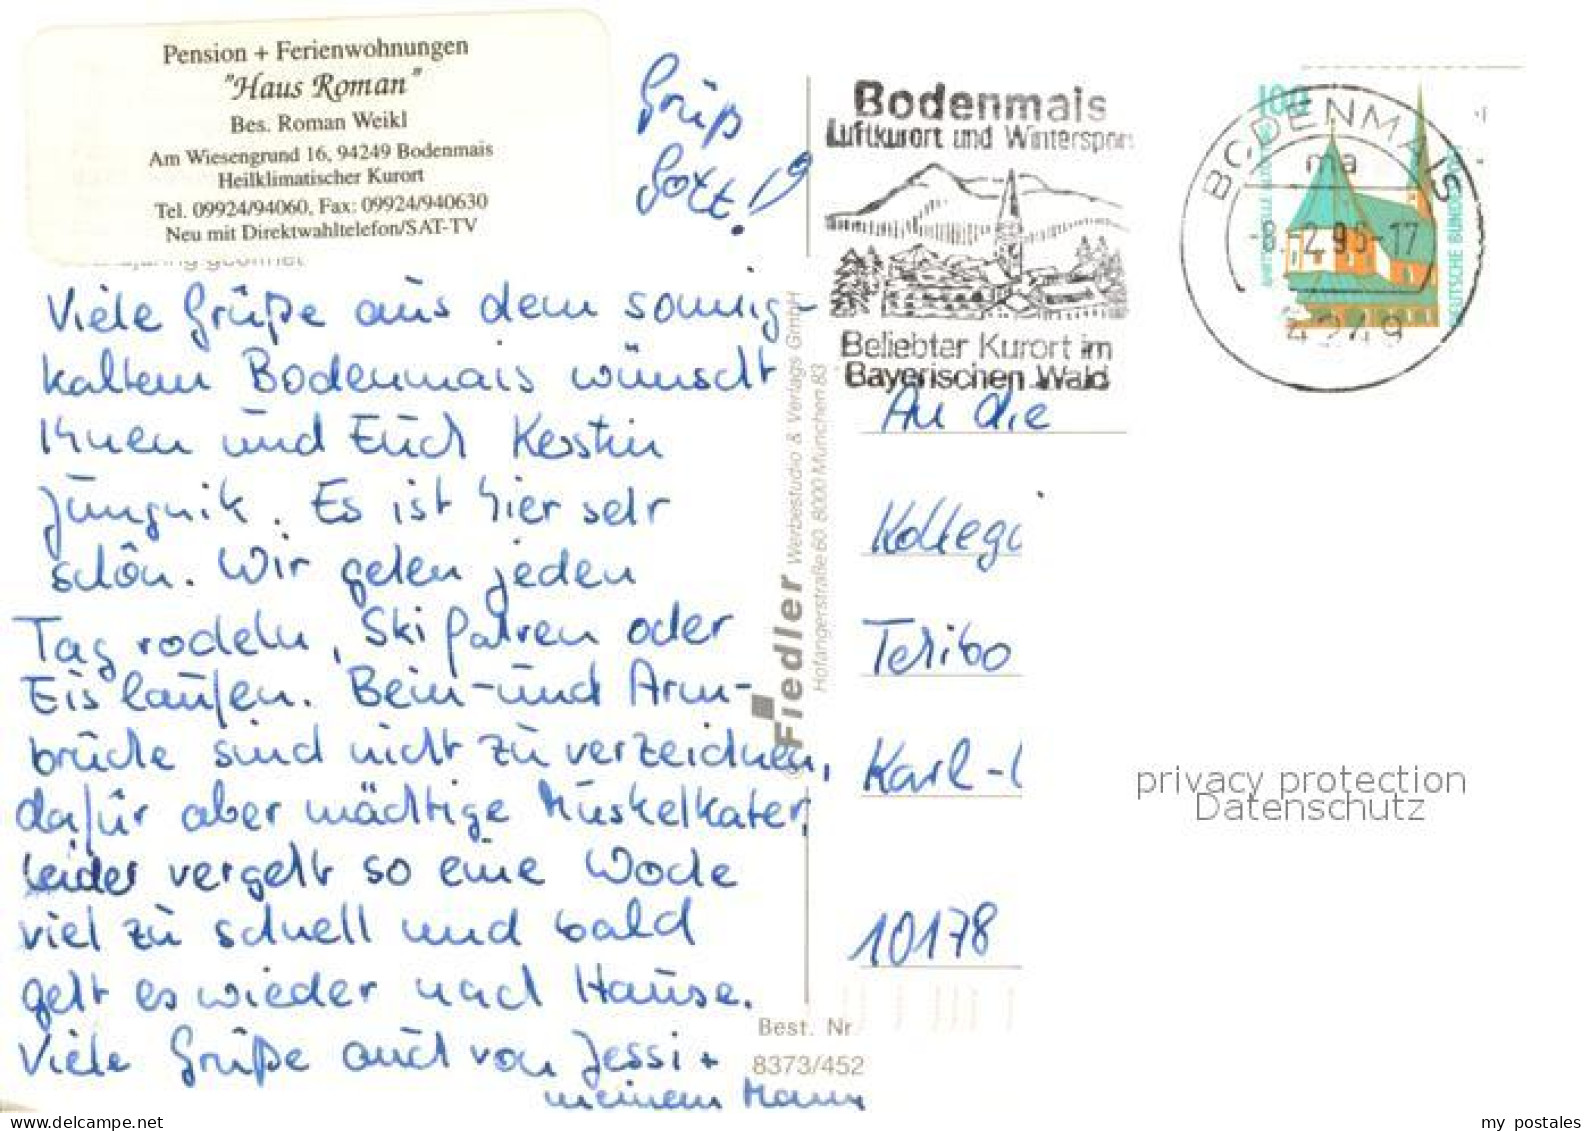 Pension + Ferienwohnungen
"Haus Roman"
Bes. Roman Weikl
Am Wiesengrund 16, 94249 Bodenmais
Heilklimatischer Kurort
Tel. 09924/94060, Fax: 09924/940630
Neu mit Direktwahltelefon/SAT-TV
Grüß
Gott!
Viele Grüße aus dem sonnig-
kaltem Bodenmais wünscht
Ihnen und Euch Kerstin
Jüngnik. Es ist hier sehr
schön. Wir gehen jeden
Tag rodeln, Ski fahren oder
Eis laufen. Bein- und Arm-
brüche sind nicht zu verzeichnen,
dafür aber mächtige Muskelkater,
leider vergeht so eine Woche
viel zu schnell und bald
geht es wieder nach Hause.
Viele Grüße auch von Jessi +
meinem Mann
Fiedler Werbestudio & Verlags GmbH
Hofangerstraße 60, 8000 München 83
Best. Nr
8373/452
Bodenmais
Luftkurort und Wintersport
Beliebter Kurort im
Bayerischen Wald
100
DEUTSCHE BUNDESPOST
BODENMAIS
ma
-2.95-17
94249
An die
Kollegi
Karl-
10178
privacy protection
Datenschutz
my postales